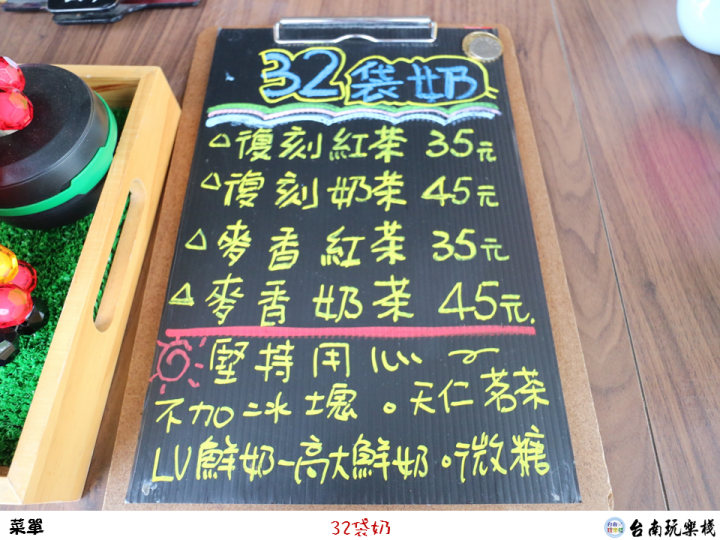 32袋奶
△復刻紅茶 35元
△復刻奶茶 45元
△麥香紅茶 35元
△麥香奶茶 45元.
堅持用心~
不加冰塊。天仁茗茶
LV鮮奶-高大鮮奶。微糖
菜單
32袋奶
台南玩樂棧